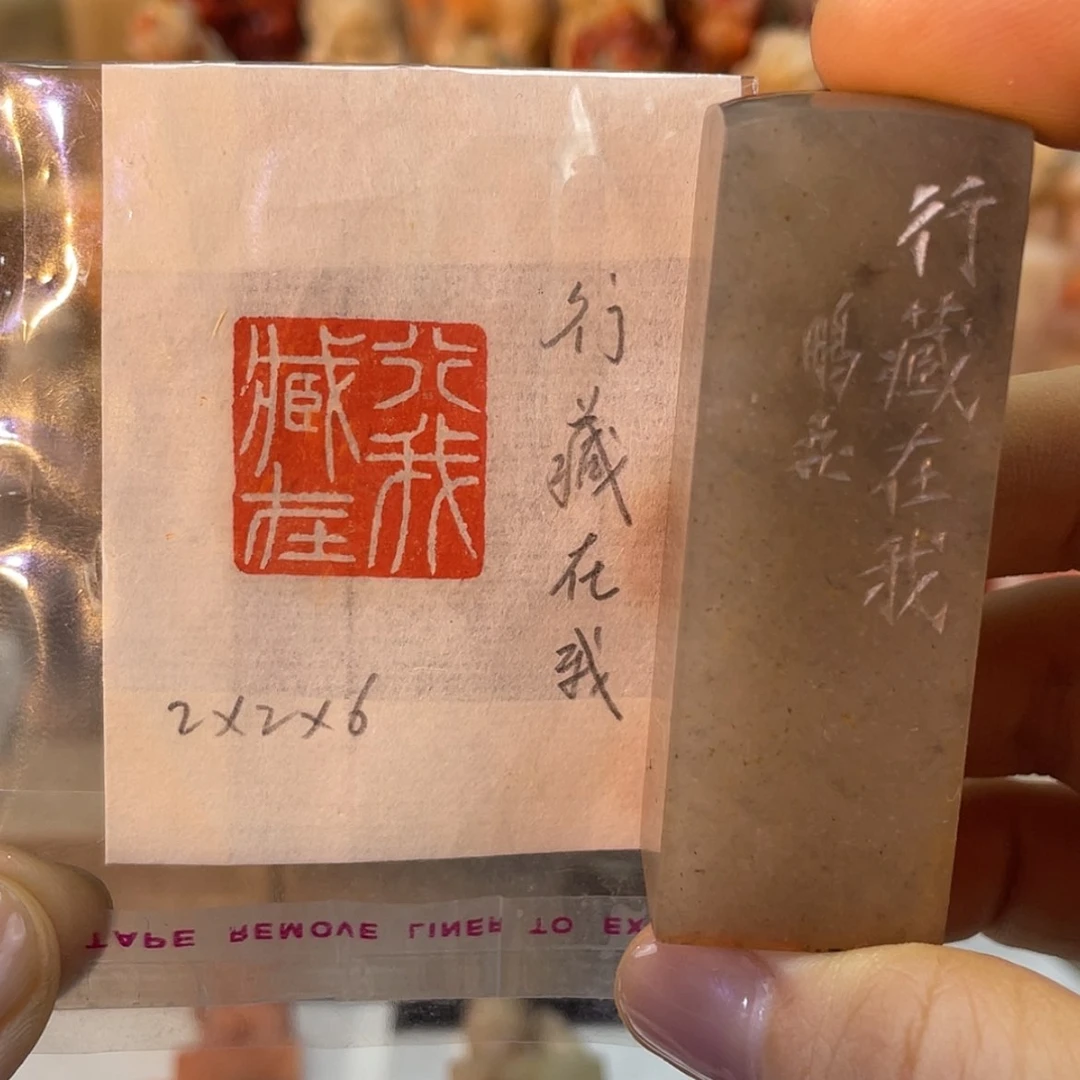 行我
藏在
行藏在我
2×2×6
行藏在我
TAPE REMOVE LINER TO